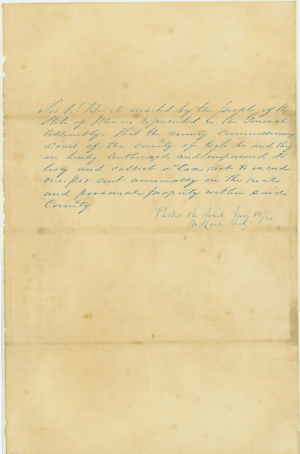 Sec 1. Be it enacted by the People of the
State of Illinois represented in the General
Assembly. That the county Commissioners
Court of the county of Ogle be and they
are hereby Authorized and empowered to
levy and collect a tax not to exceed
one per cent annually on the real
and personal property within said
County
Passed the